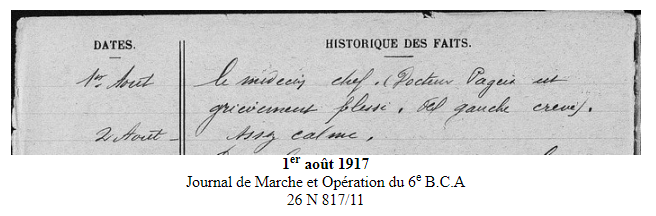 DATES. HISTORIQUE DES FAITS.
1er Août le médecin chef. (Docteur Pageix est
grièvement blessé. Œil gauche crevé).
2 Août _ Assez calme.
1er août 1917
Journal de Marche et Opération du 6e B.C.A
26 N 817/11